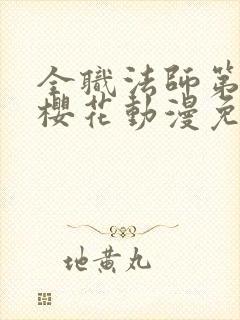 全職法師第
櫻花動漫免
地黃丸